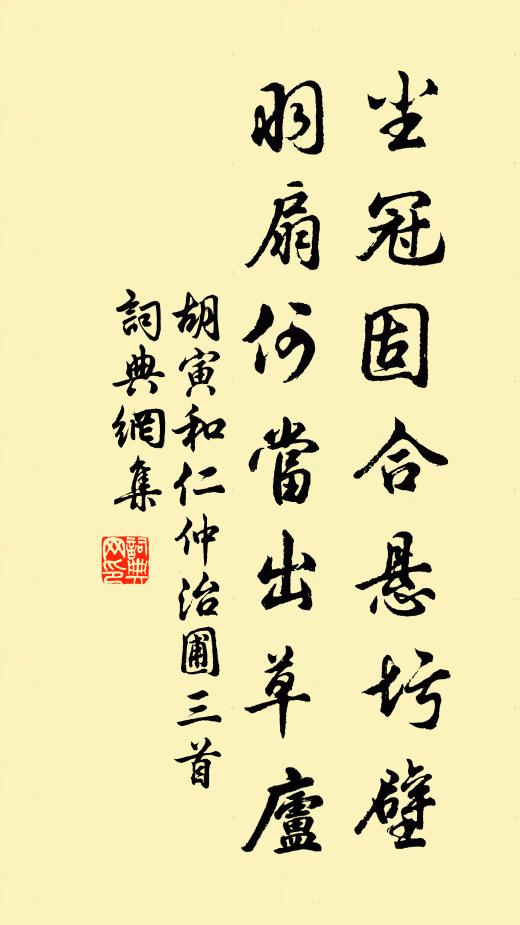 尘冠固合悬圬壁
羽扇何當出草廬
胡寅和仁仲治圃三首
詞典網集
詞典网印